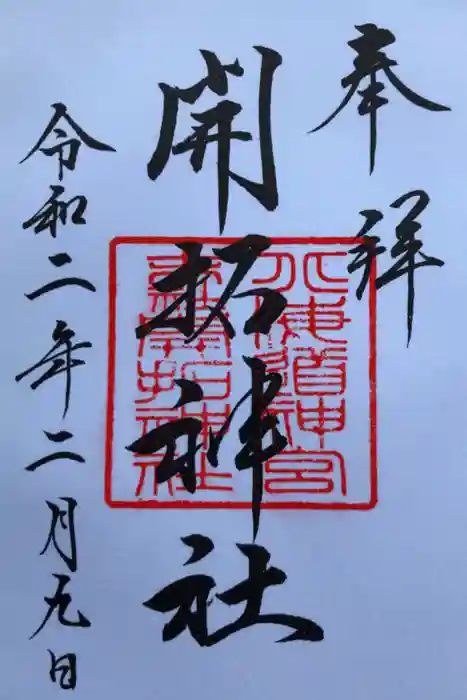 奉拝
開拓神社
令和二年二月九日
北海道神宮
末社開拓神社